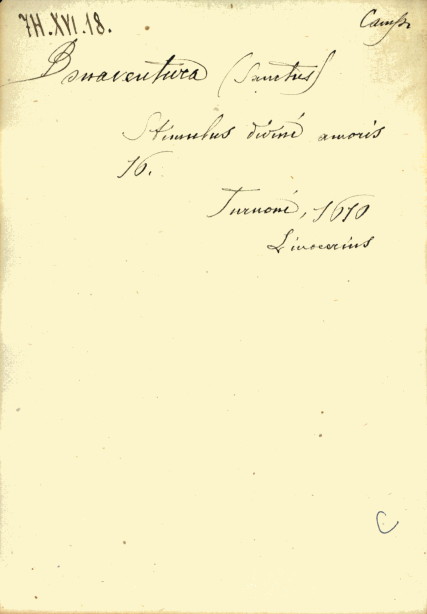 7H.XVI.18.
Bonaventura (Sanctus)
Stimulus divini amoris
16.
Turnoni, 1610
Linocerius
C